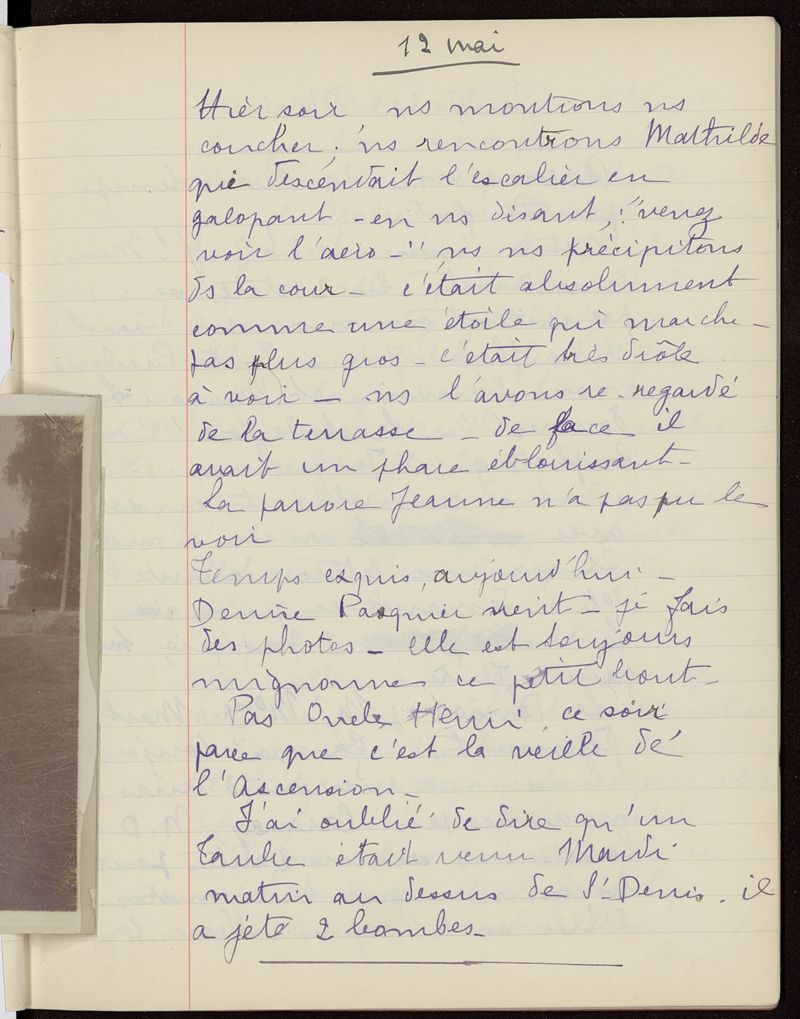 12 mai
Hier soir ns montions ns
coucher. ns rencontrons Mathilde
qui descendait l'escalier en
galopant - en ns disant, : "venez
voir l'aéro - " ns ns précipitons
ds la cour - c'était absolument
comme une étoile qui marche -
pas plus gros - c'était très drôle
à voir - ns l'avons re-regardé
de la terrasse - de face il
avait un phare éblouissant -
La pauvre Jeanne n'a pas pu le
voir
Temps exquis, aujourd'hui -
Denise Pasquier vient - je fais
des photos - elle est toujours
mignonne ce petit bout -
Pas Oncle Henri ce soir
parce que c'est la veille de
l'Ascension -
J'ai oublié de dire qu'un
Taube était venu Mardi
matin au dessus de St-Denis. il
a jété 2 bombes -